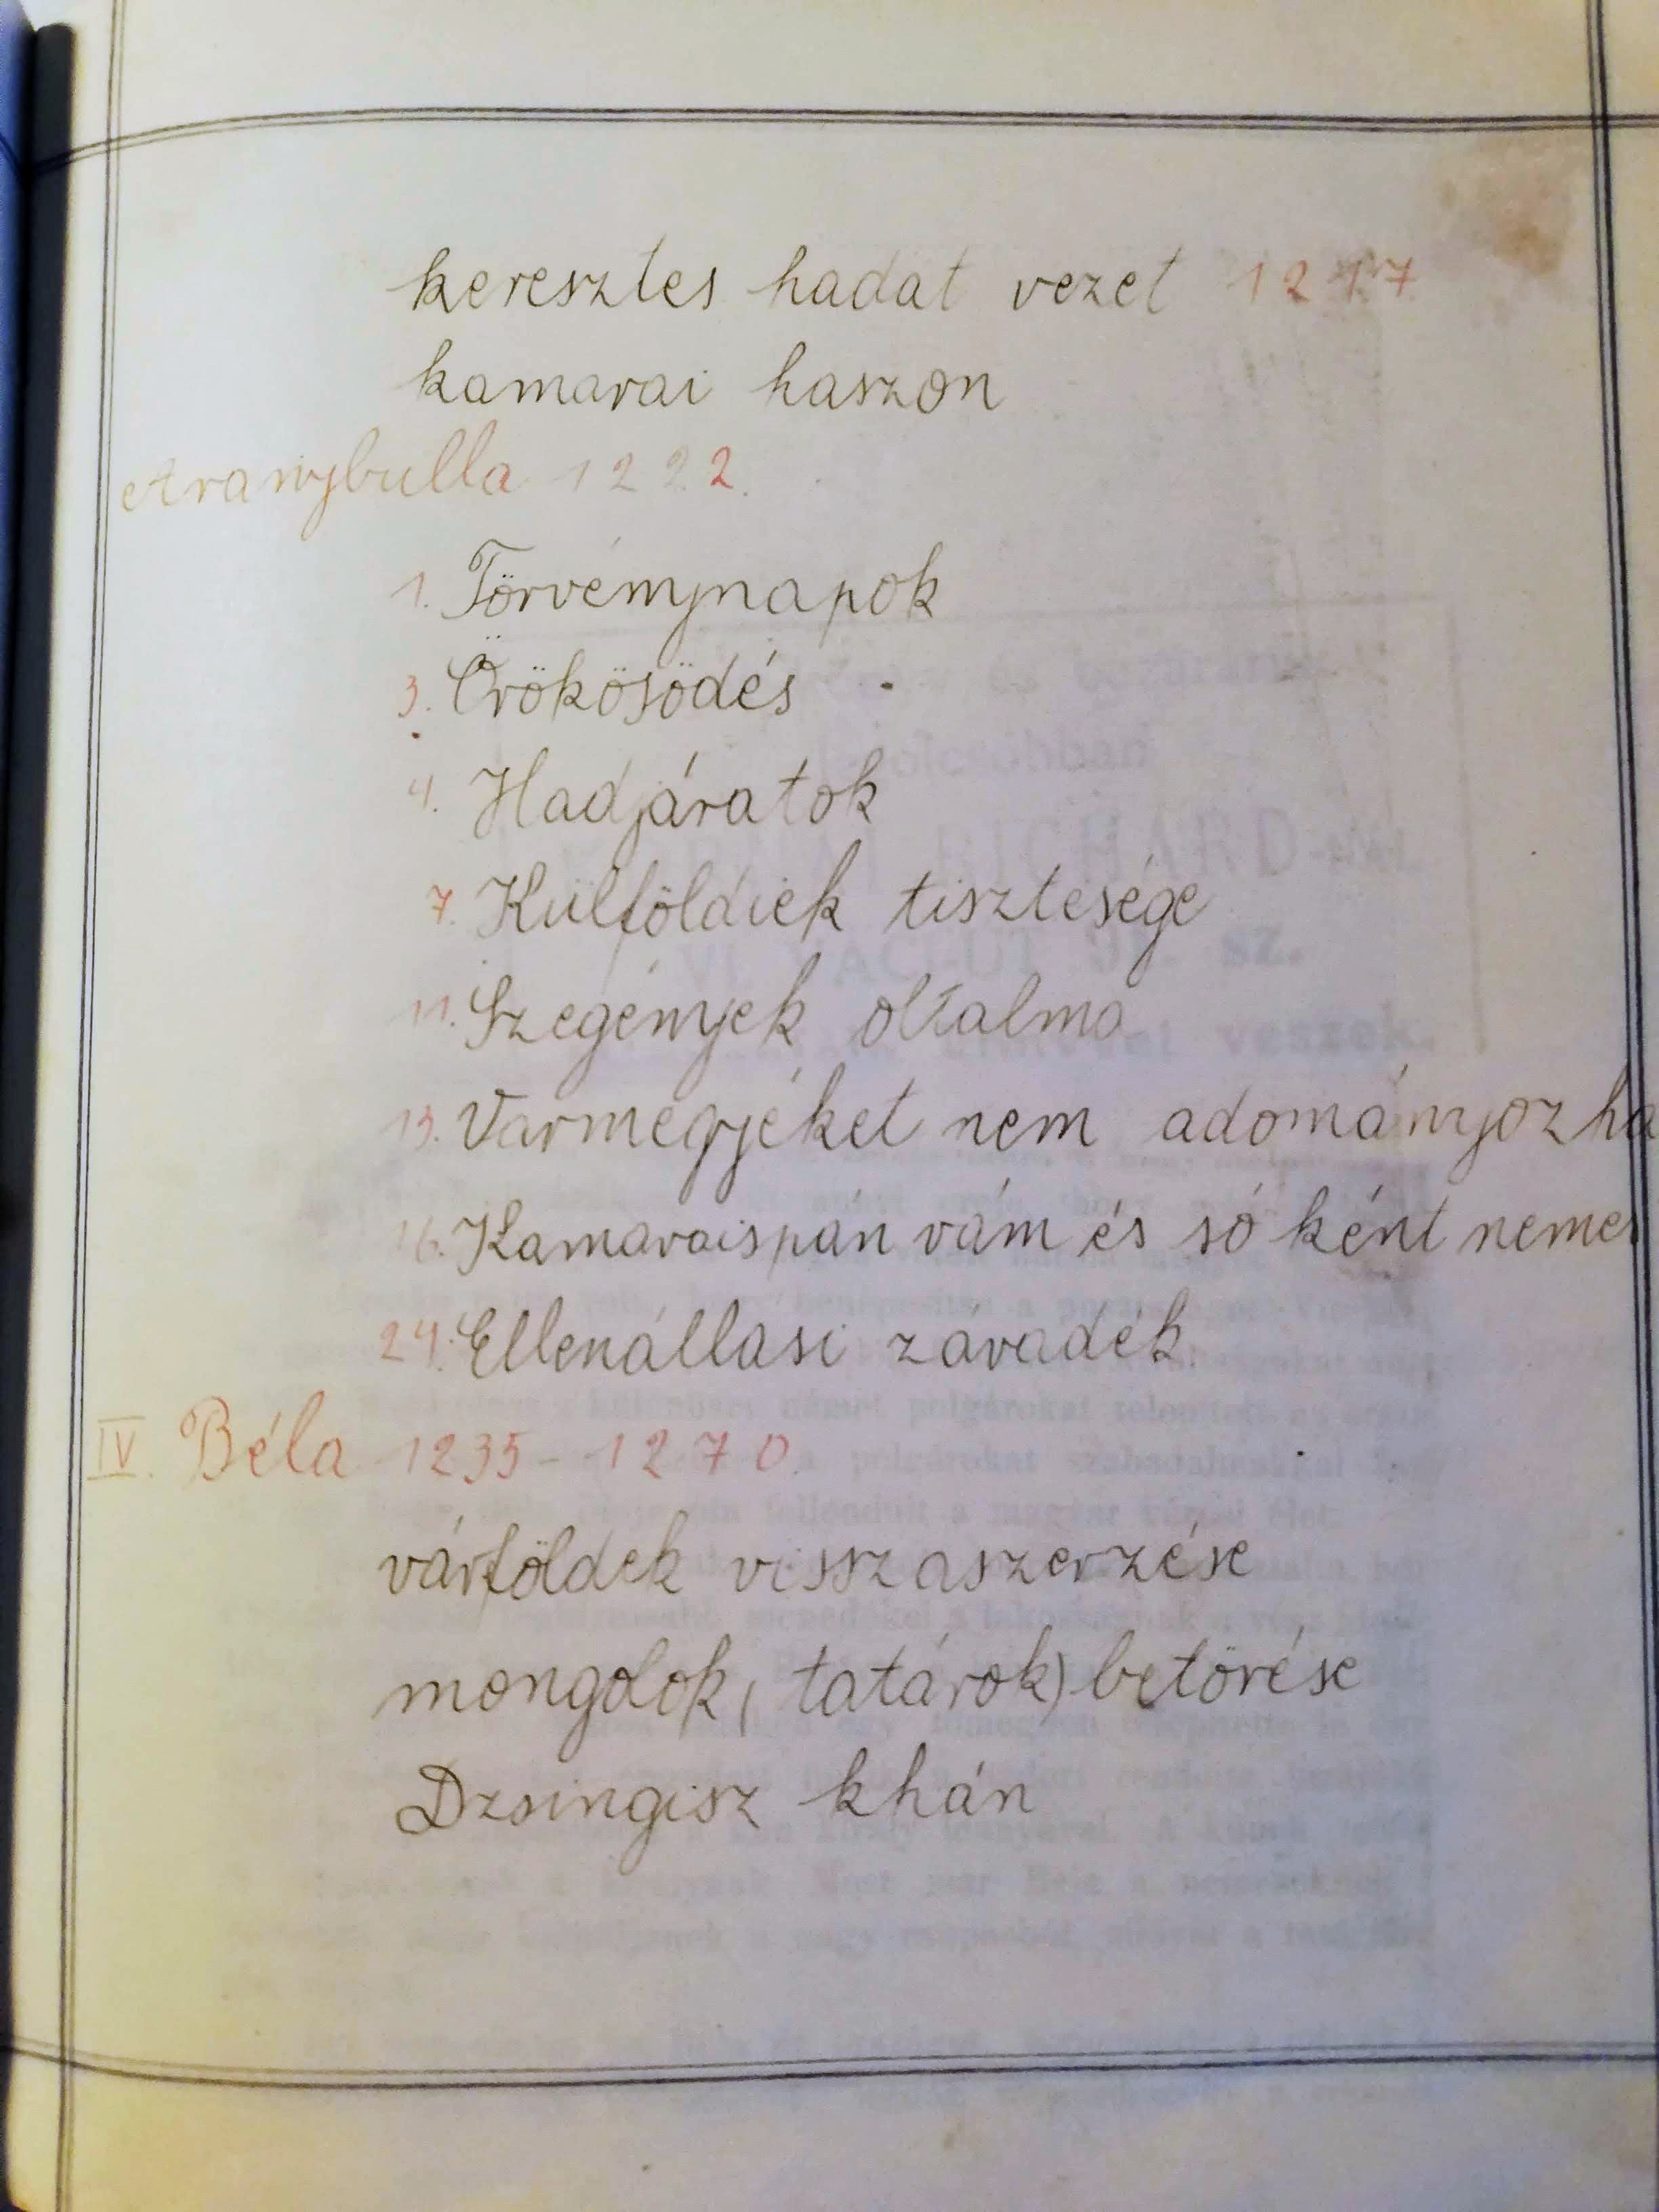 keresztes hadat vezet 1217
kamarai haszon
Aranybulla 1222.
1. Törvénynapok
3. Örökösödés
4. Hadjáratok
7. Külföldiek tisztesége
11. Szegények oltalma
13. Vármegyéket nem adományozha
16. Kamaraispán vám és só ként nemes
24. Ellenállási závadék
IV. Béla 1235-1270.
várföldek visszaszerzése
mongolok, (tatárok) betörése
Dzsingisz khán